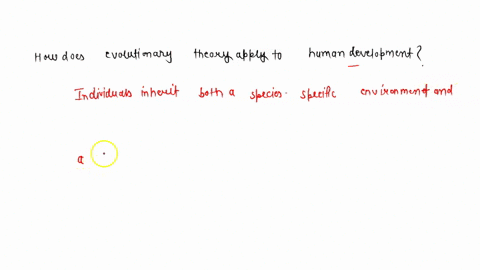 How does evolutionary theory apply to human development?
Individuals inherit both a species-specific environment and
a